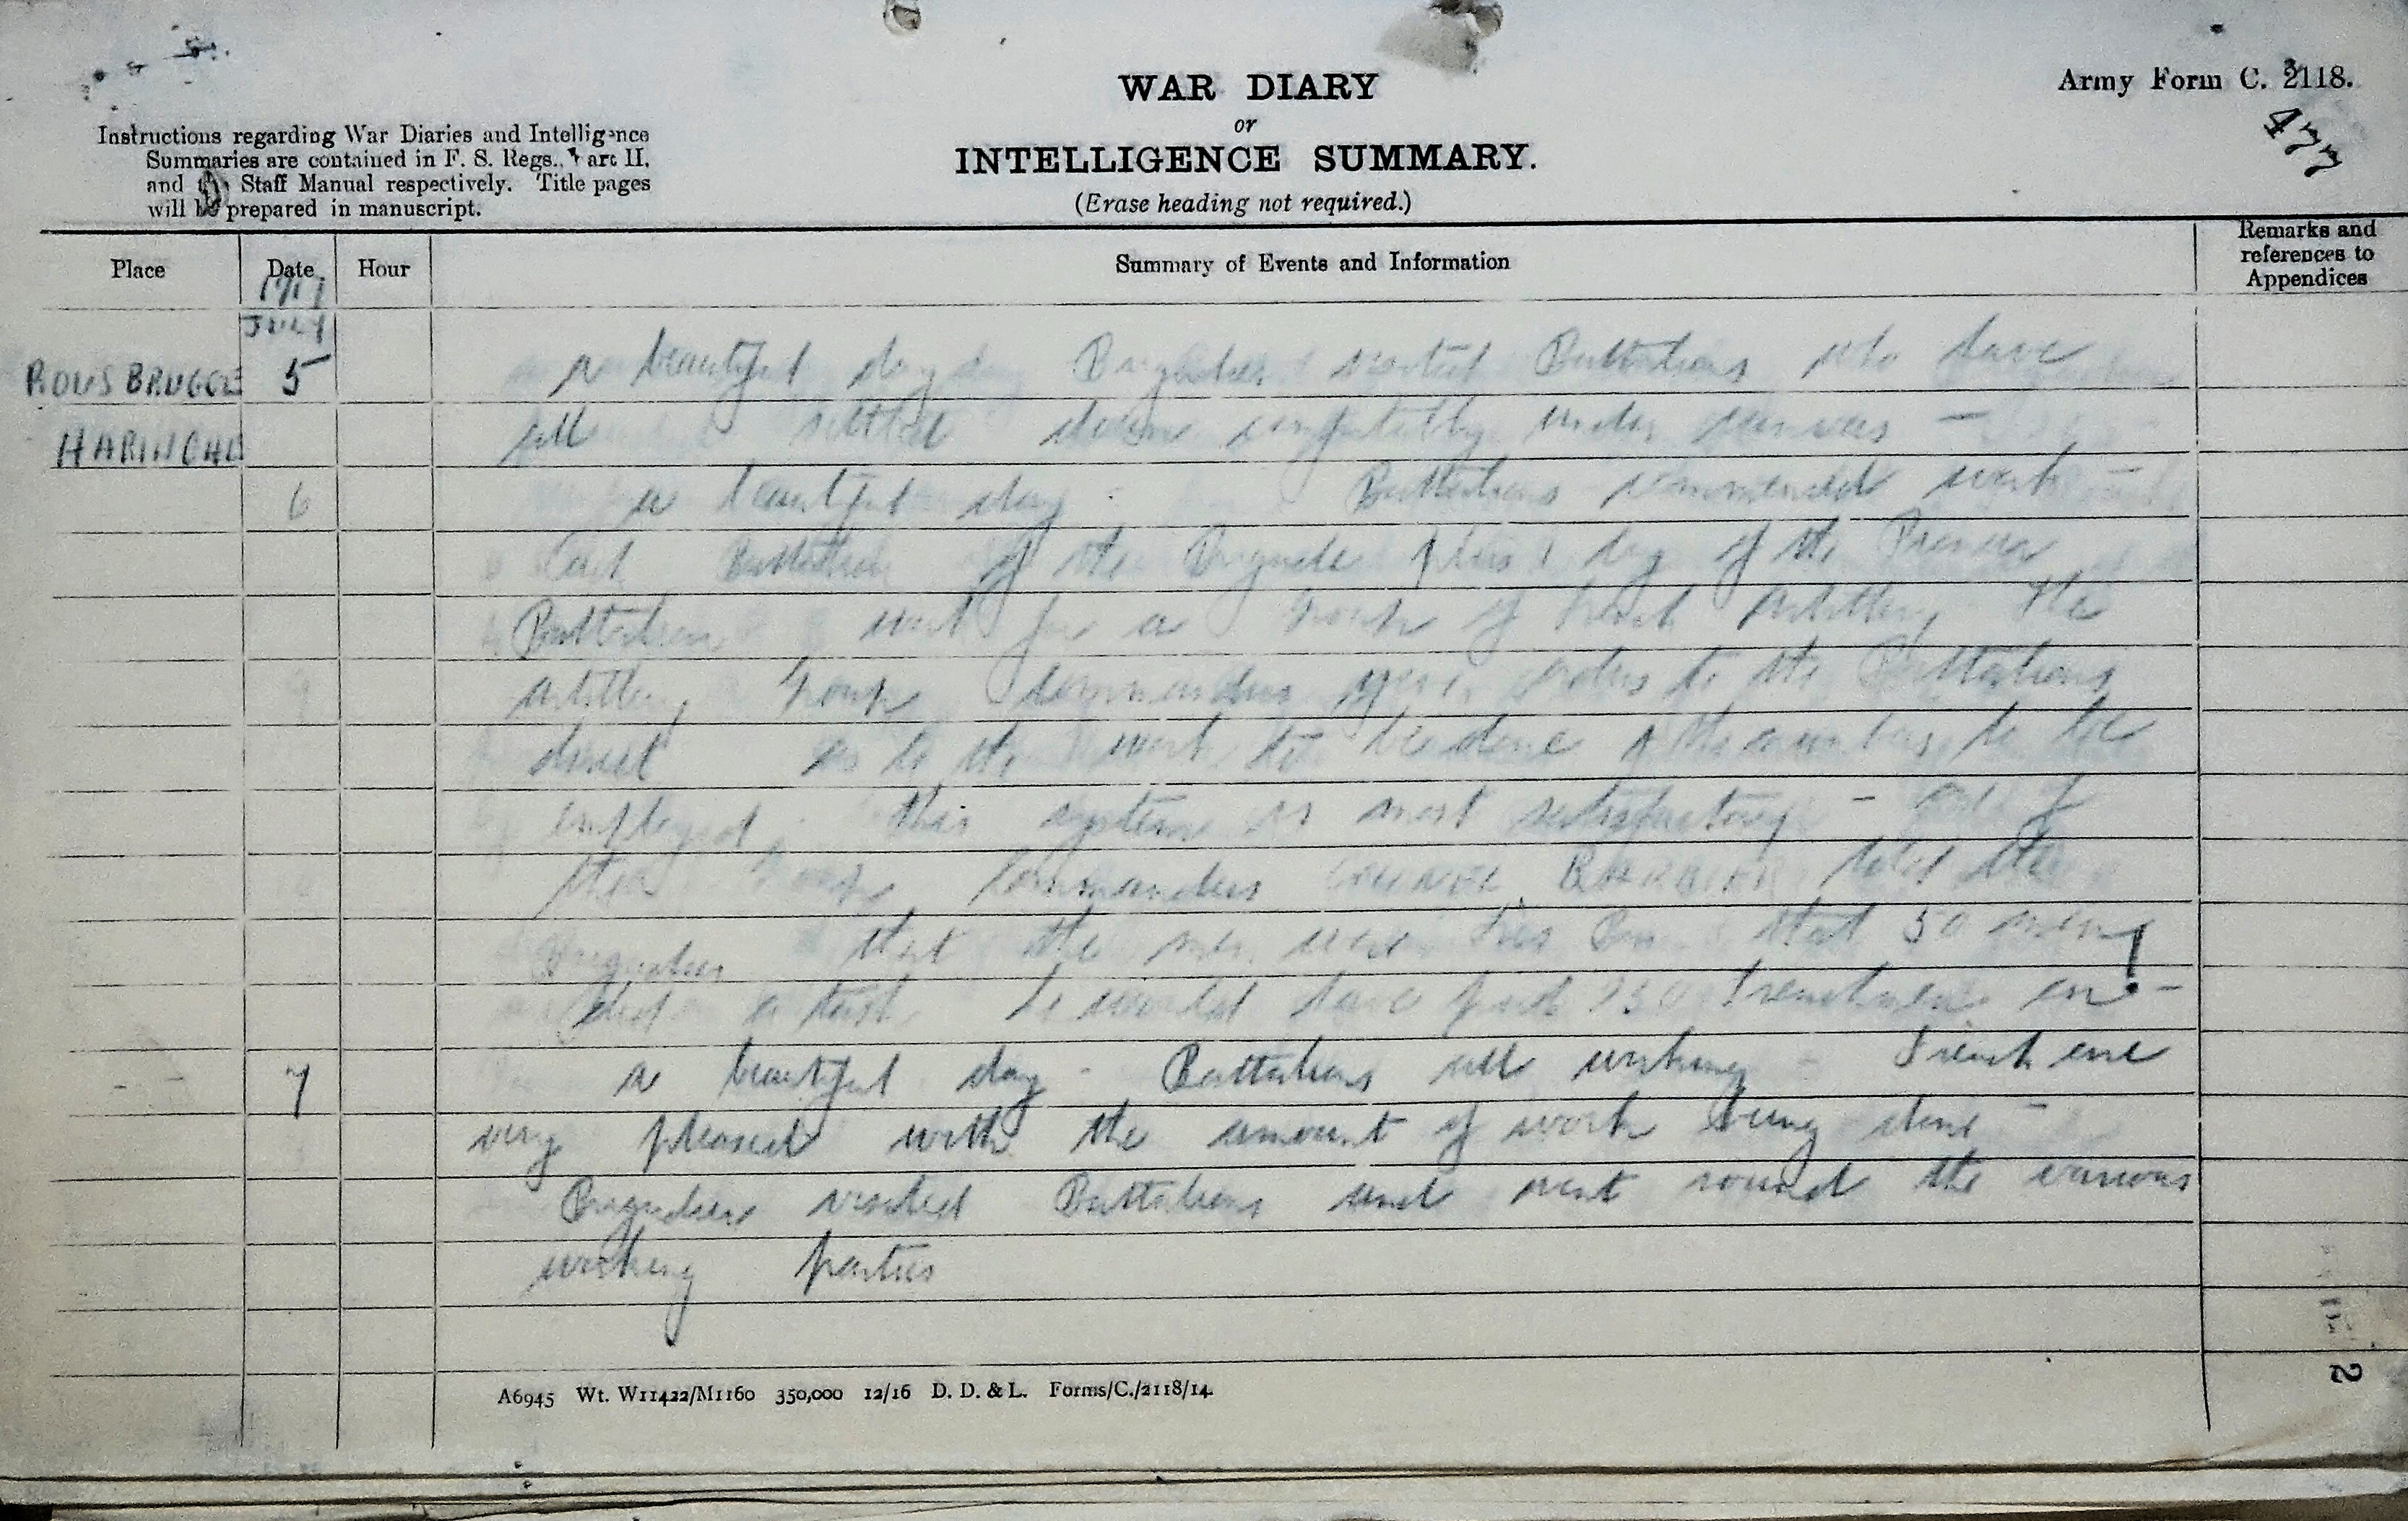 WAR DIARY
or
INTELLIGENCE SUMMARY.
(Erase heading not required.)
Army Form C. 2118.
477
Instructions regarding War Diaries and Intelligence
Summaries are contained in F. S. Regs., Part II,
and the Staff Manual respectively. Title pages
will be prepared in manuscript.
Place
Date
Hour
Summary of Events and Information
Remarks and
references to
Appendices
1917
JULY
ROUSBRUGGE 5 A beautiful day Brigadier visited Battalions who have
all settled down comfortably under canvas —
HARINGHE
6 a beautiful day - Battalions commenced work —
Each Battalion of the Brigade plus 1 Coy of the Pioneer
Battalion work for a Group of French Artillery The
artillery Group Commanders give orders to the Battalions
direct as to the work to be done & the numbers to be
employed. This system is most satisfactory — One of
the Group Commanders told the
Brigadier that the men were that 50 men
did a task he would have put 250 Frenchmen on -
7 a beautiful day - Battalions all working - French are
very pleased with the amount of work being done -
Brigadier visited Battalions and went round the various
working parties
2
A6945 Wt. W11422/M1160 350,000 12/16 D. D. & L. Forms/C./2118/14.